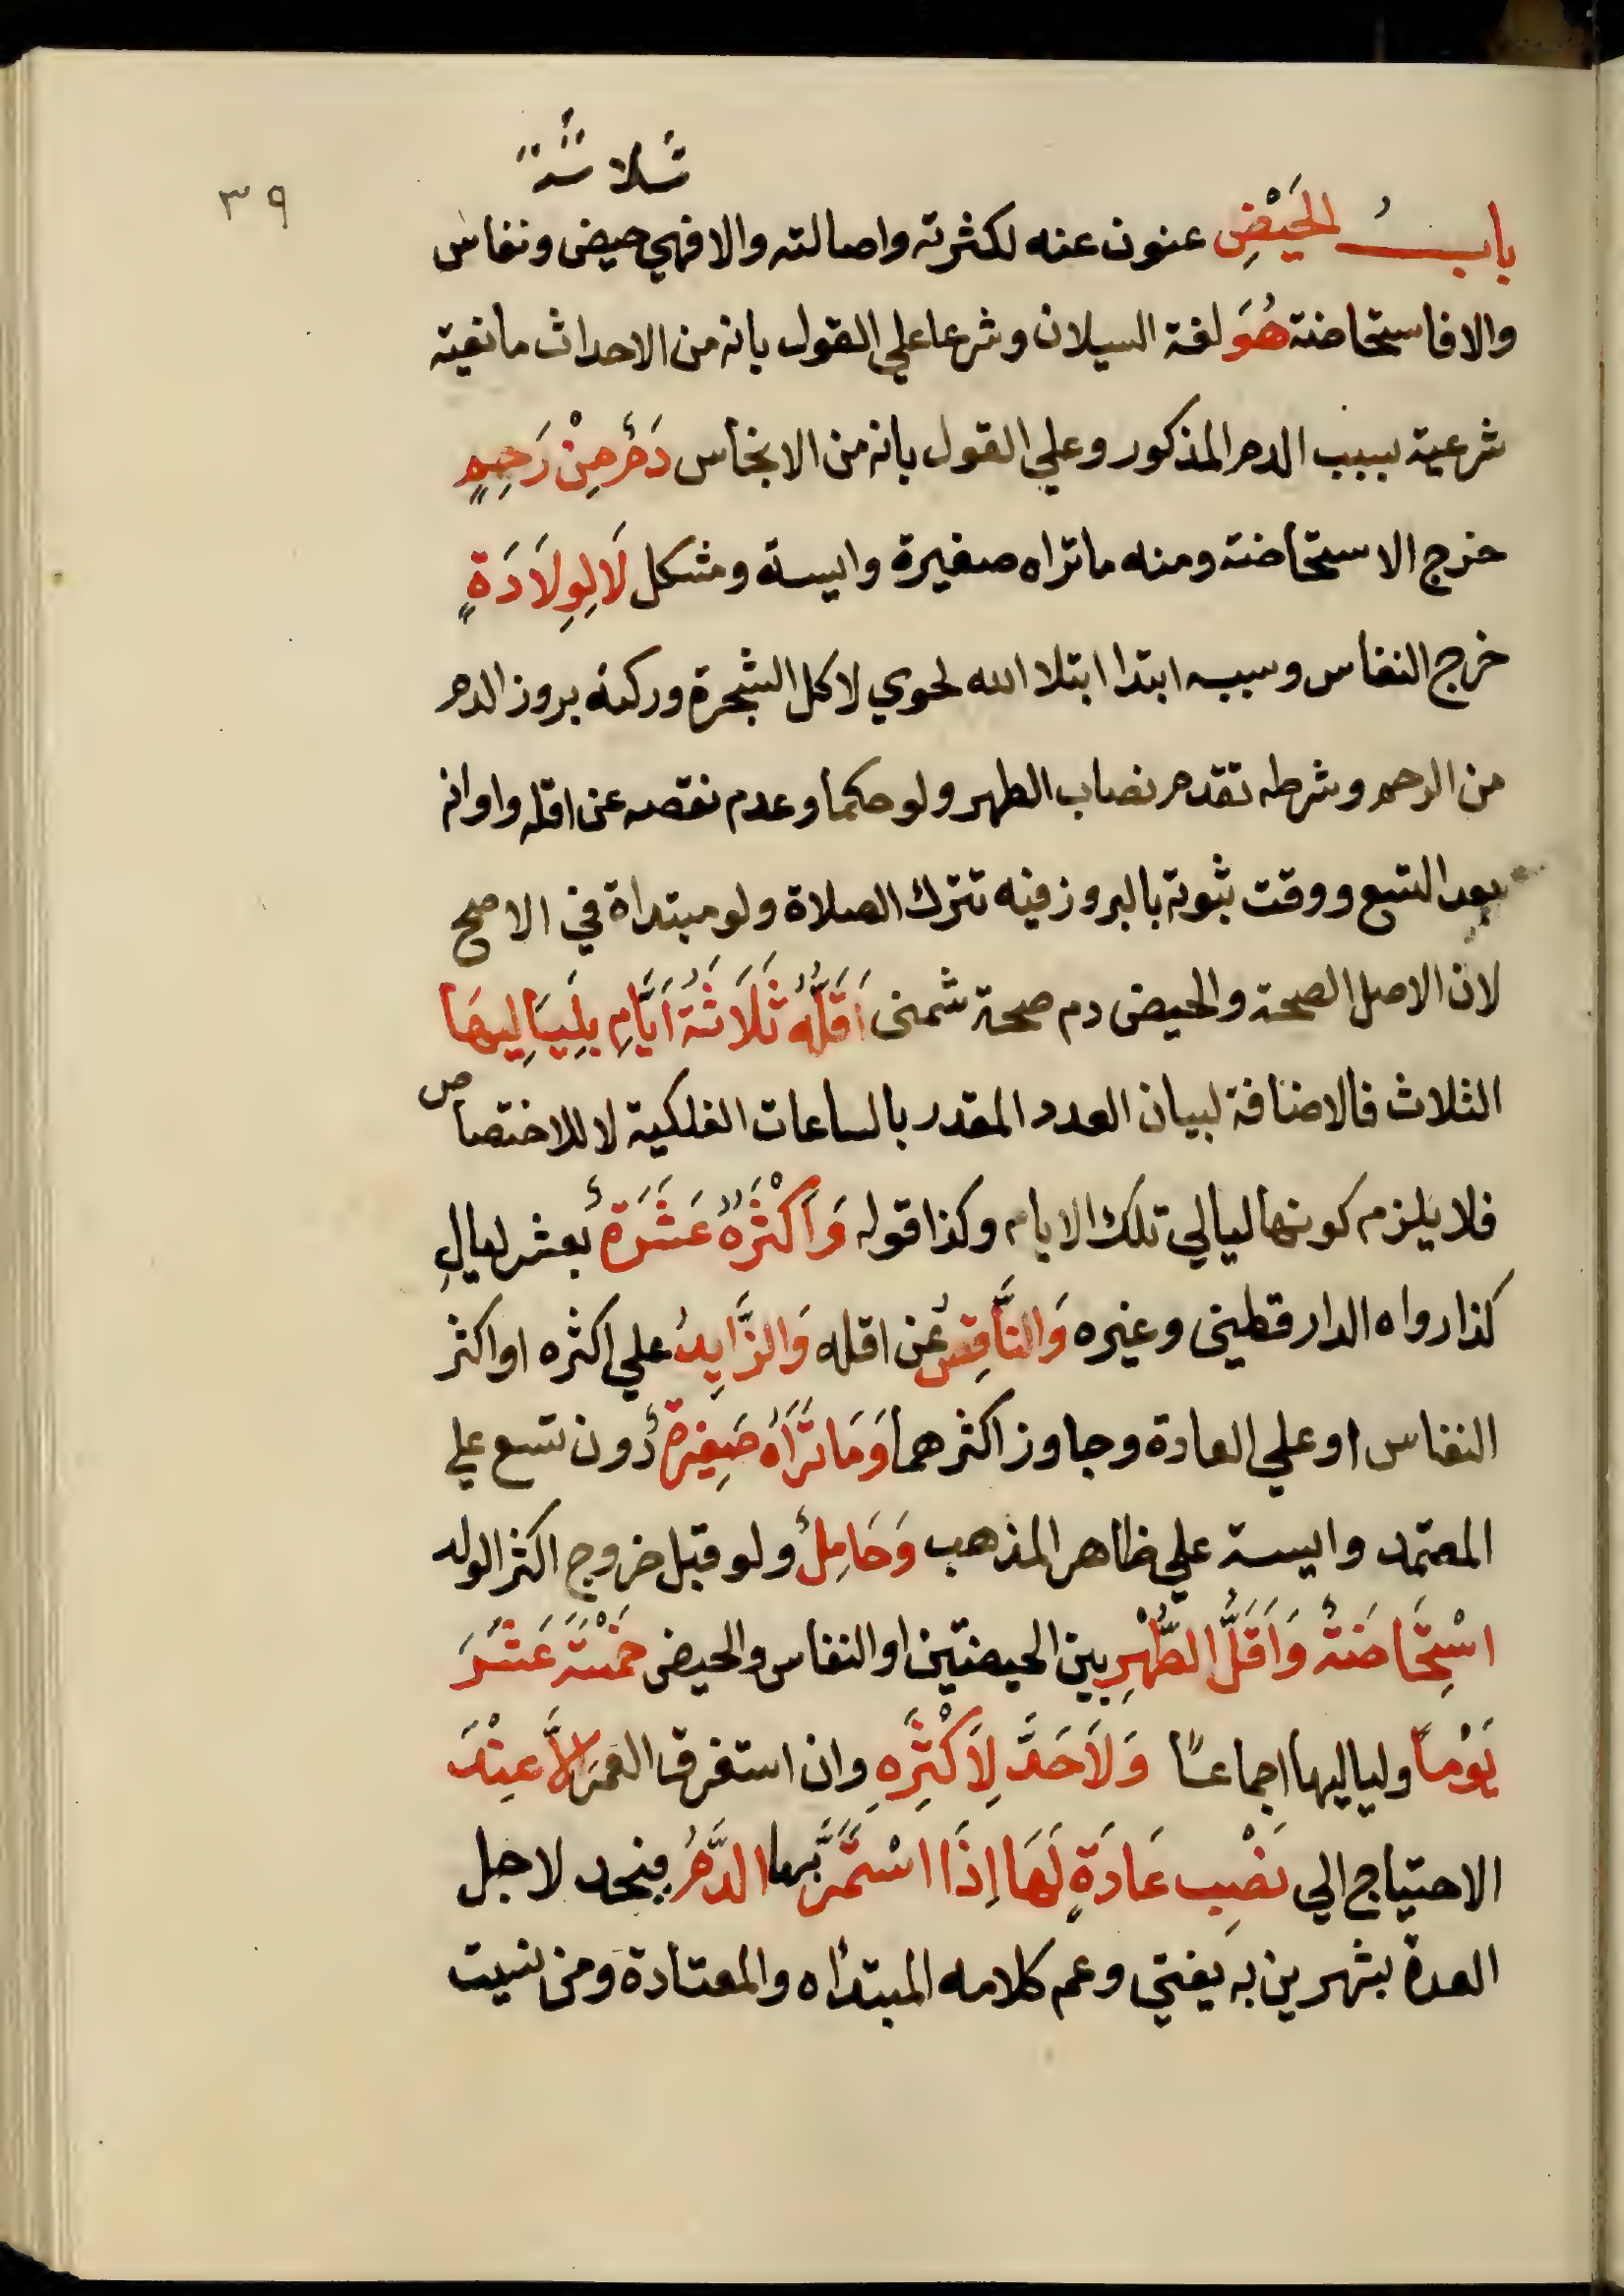 ثلاثة
٣٩
بابُ الحَيْضِ عنون عنه لكثرته واصالته والا فهي حيض ونفاس
والا فاستحاضة هُوَ لغة السيلان وشرعا علي القول بانه من الاحداث مانعية
شرعية بسبب الدم المذكور وعلي القول بانه من الانجاس دَمٌ مِنْ رَحِمٍ
خرج الاستحاضة ومنه ما تراه صغيرة وايسة ومشكل لَا لِوِلَادَةٍ
خرج النفاس وسببه ابتدا ابتلا الله لحوي لاكل الشجرة وركنه بروز الدم
من الرحم وشرطه تقدم نصاب الطهر ولو حكما وعدم نقصه عن اقله واوانه
بعد التسع ووقت ثبوته بالبروز فيه تترك الصلاة ولو مبتداة في الاصح
لان الاصل الصحة والحيض دم صحة شمنى اَقَلُّهُ ثَلَاثَةُ اَيَّامٍ بِلَيَالِيهَا
الثلاث فالاضافة لبيان العدد المقدر بالساعات الفلكية لا للاختصاص
فلا يلزم كونها ليالي تلك الايام وكذا قوله وَاَكْثَرُهُ عَشَرَةٌ بعشر ليالٍ
كذا رواه الدارقطني وغيره وَالنَّاقِصُ عن اقله وَالزَّايِدُ علي اكثره او اكثر
النفاس او علي العادة وجاوز اكثرهما وَمَا تَرَاهُ صَغِيرةٌ دون تسع علي
المعتمد وايسة علي ظاهر المذهب وَحَامِلٌ ولو قبل خروج اكثر الولد
اسْتِحَاضَةٌ وَاَقَلُّ الطُّهْرِ بين الحيضتين او النفاس والحيض خَمْسَةَ عَشَرَ
يَوْماً ولياليها اجماعاً وَلاَ حَدَّ لِاَكْثَرِهِ وان استغرق العمر اِلاَّ عِنْدَ
الاحتياج الي نَصْبِ عَادَةٍ لَهَا اِذَا اسْتَمَرَّ بها الدَّمُ فيحد لاجل
العدة بشهرين به يفتى وعم كلامه المبتداه والمعتادة ومن نسيت